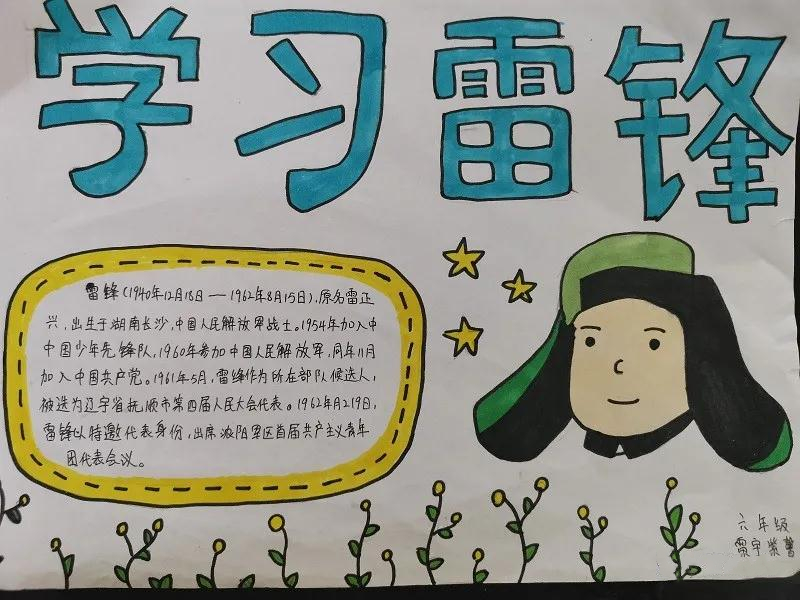 学习雷锋
雷锋(1940年12月18日——1962年8月15日),原名雷正
兴,出生于湖南长沙,中国人民解放军战士。1954年加入中
中国少年先锋队,1960年参加中国人民解放军,同年11月
加入中国共产党。1961年5月,雷锋作为所在部队候选人,
被选为辽宁省抚顺市第四届人民大会代表。1962年2月19日,
雷锋以特邀代表身份,出席沈阳军区首届共产主义青年
团代表会议。
六年级